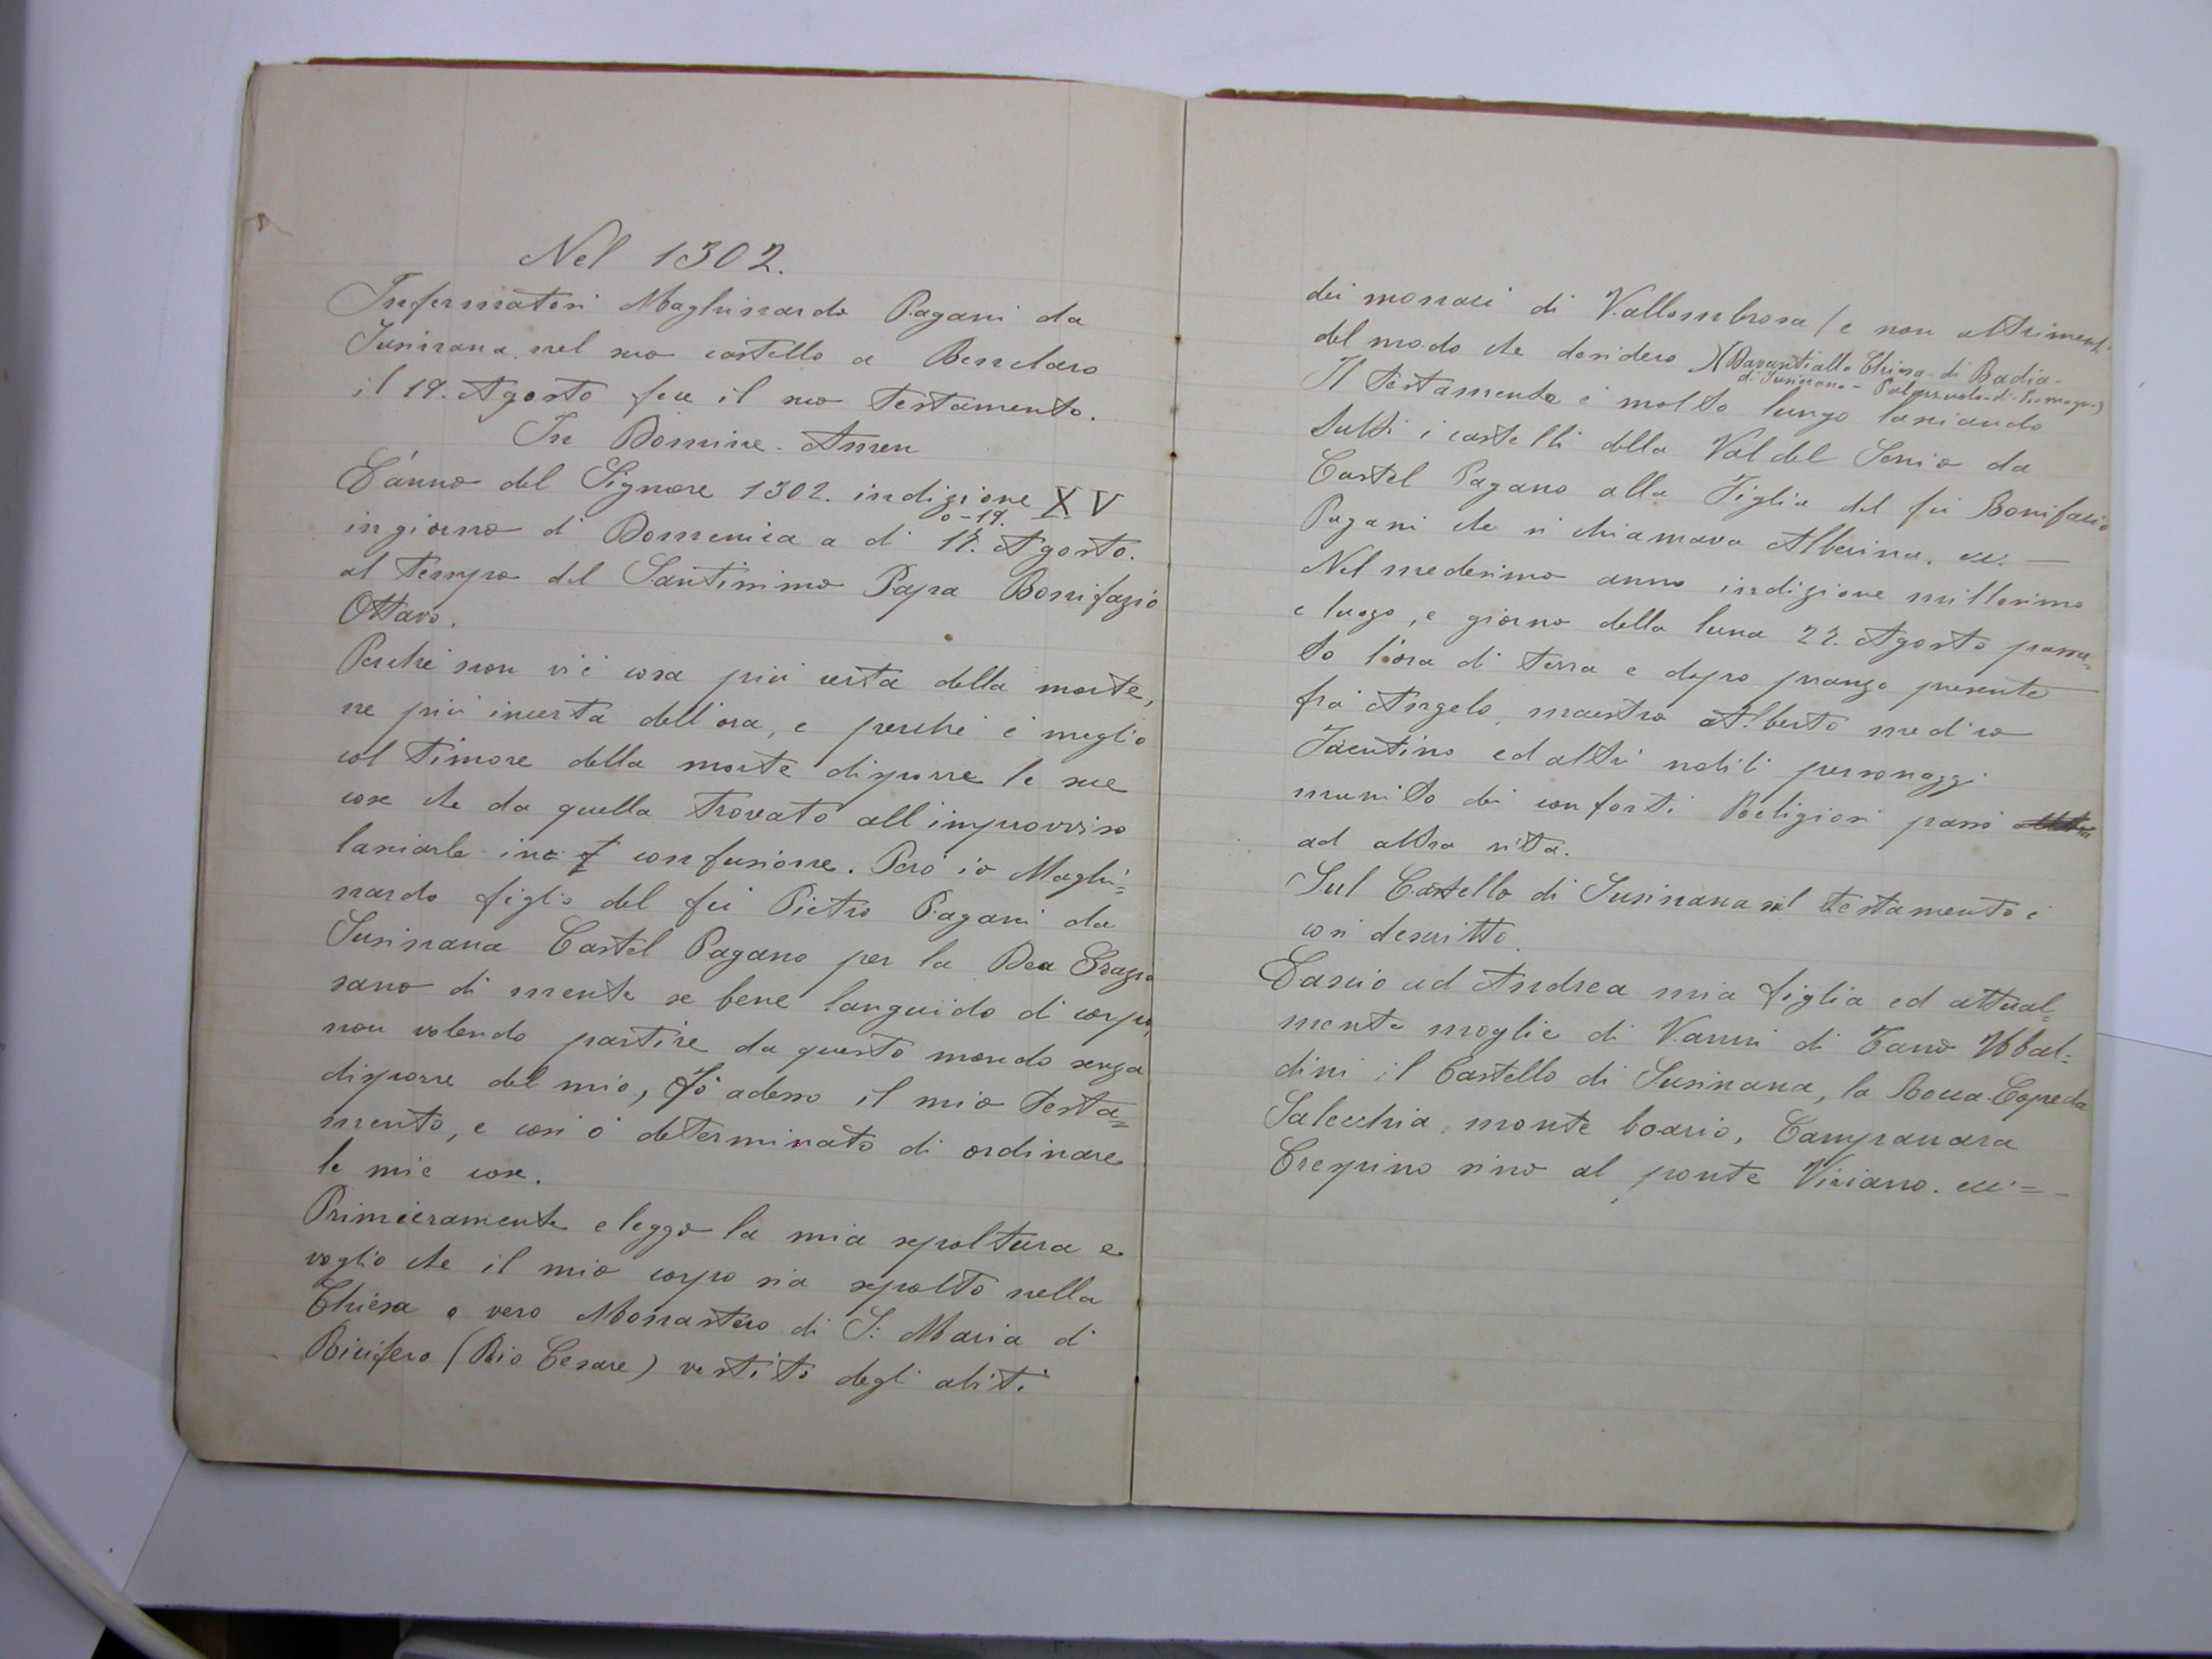 Nel 1302.
Infermatosi Maghinardo Pagani da
Susinana. nel suo castello a Benclaro
il 19. Agosto fece il suo testamento.
In Domine. Amen
L'anno del Signore 1302. indizione XV
o - 19.
in giorno di Domenica a di 18. Agosto.
al tempo del Santissimo Papa Bonifazio
Ottavo.
Perchè non vi è cosa più certa della morte,
ne più incerta dell'ora, e perchè è meglio
col timore della morte disporre le sue
cose che da quella trovato all'improvviso
lasciarle in confusione. Però io Maghi=
nardo figlio del fù Pietro Pagani da
Susinana Castel Pagano per la Dea Grazia
sano di mente se bene languido di corpo,
non volendo partire da questo mondo senza
disporre del mio, fò adesso il mio testa=
mento, e così ò determinato di ordinare
le mie cose.
Primieramente eleggo la mia sepoltura e
voglio che il mio corpo sia sepolto nella
Chiesa o vero Monastero di S: Maria di
Ricifero (Rio Cesare) vestito degli abiti
dei monaci di Vallombrosa (e non altrimenti
del modo che desidero) (Davanti alla Chiesa di Badia
di Susinana - Palazzuolo-di-Romagna)
Il testamento è molto lungo lasciando
tutti i castelli della Val del Senio da
Castel Pagano alla Figlia del fù Bonifacio
Pagani che si chiamava Albesina. ecc. —
Nel medesimo anno indizione millesimo
e luogo, e giorno della luna 27. Agosto passa=
to l'ora di terza e dopo pranzo presente
frà Angelo, maestro Alberto medico
Faentino ed altri nobili personaggi
munito dei conforti Religiosi passò
ad altra vita.
Sul Castello di Susinana sul testamento è
così descritto.
Lascio ad Andrea mia figlia ed attual=
mente moglie di Vanni di Tano Ubbal=
dini il Castello di Susinana, la Rocca
Salecchia, monte boario, Campanara
Crespino sino al ponte Viciano. ecc. = -